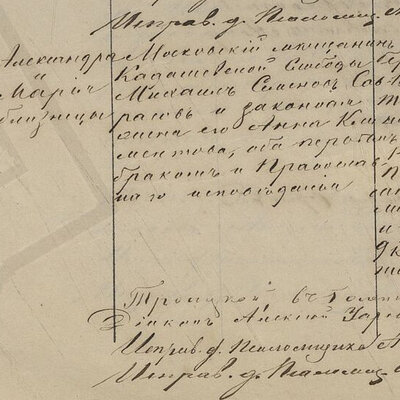 Исправ. д. Псаломщ.
Александра
и
Марія
близнецы
Московскій мѣщанинъ
Кадашевской Слободы
Михаилъ Семеновъ Сав
расовъ и законная
жена его Анна Кли
ментова, оба первымъ
бракомъ и Православ
наго исповѣданія
Троицкой, въ Голен
Діаконъ Алексій
Исправ. д. Псаломщика
Исправ. д. Псаломщ.